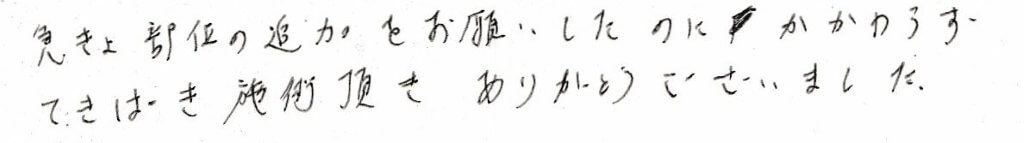 急きょ部位の追加をお願いしたのにかかわらず
てきぱき施術頂きありがとうございました.